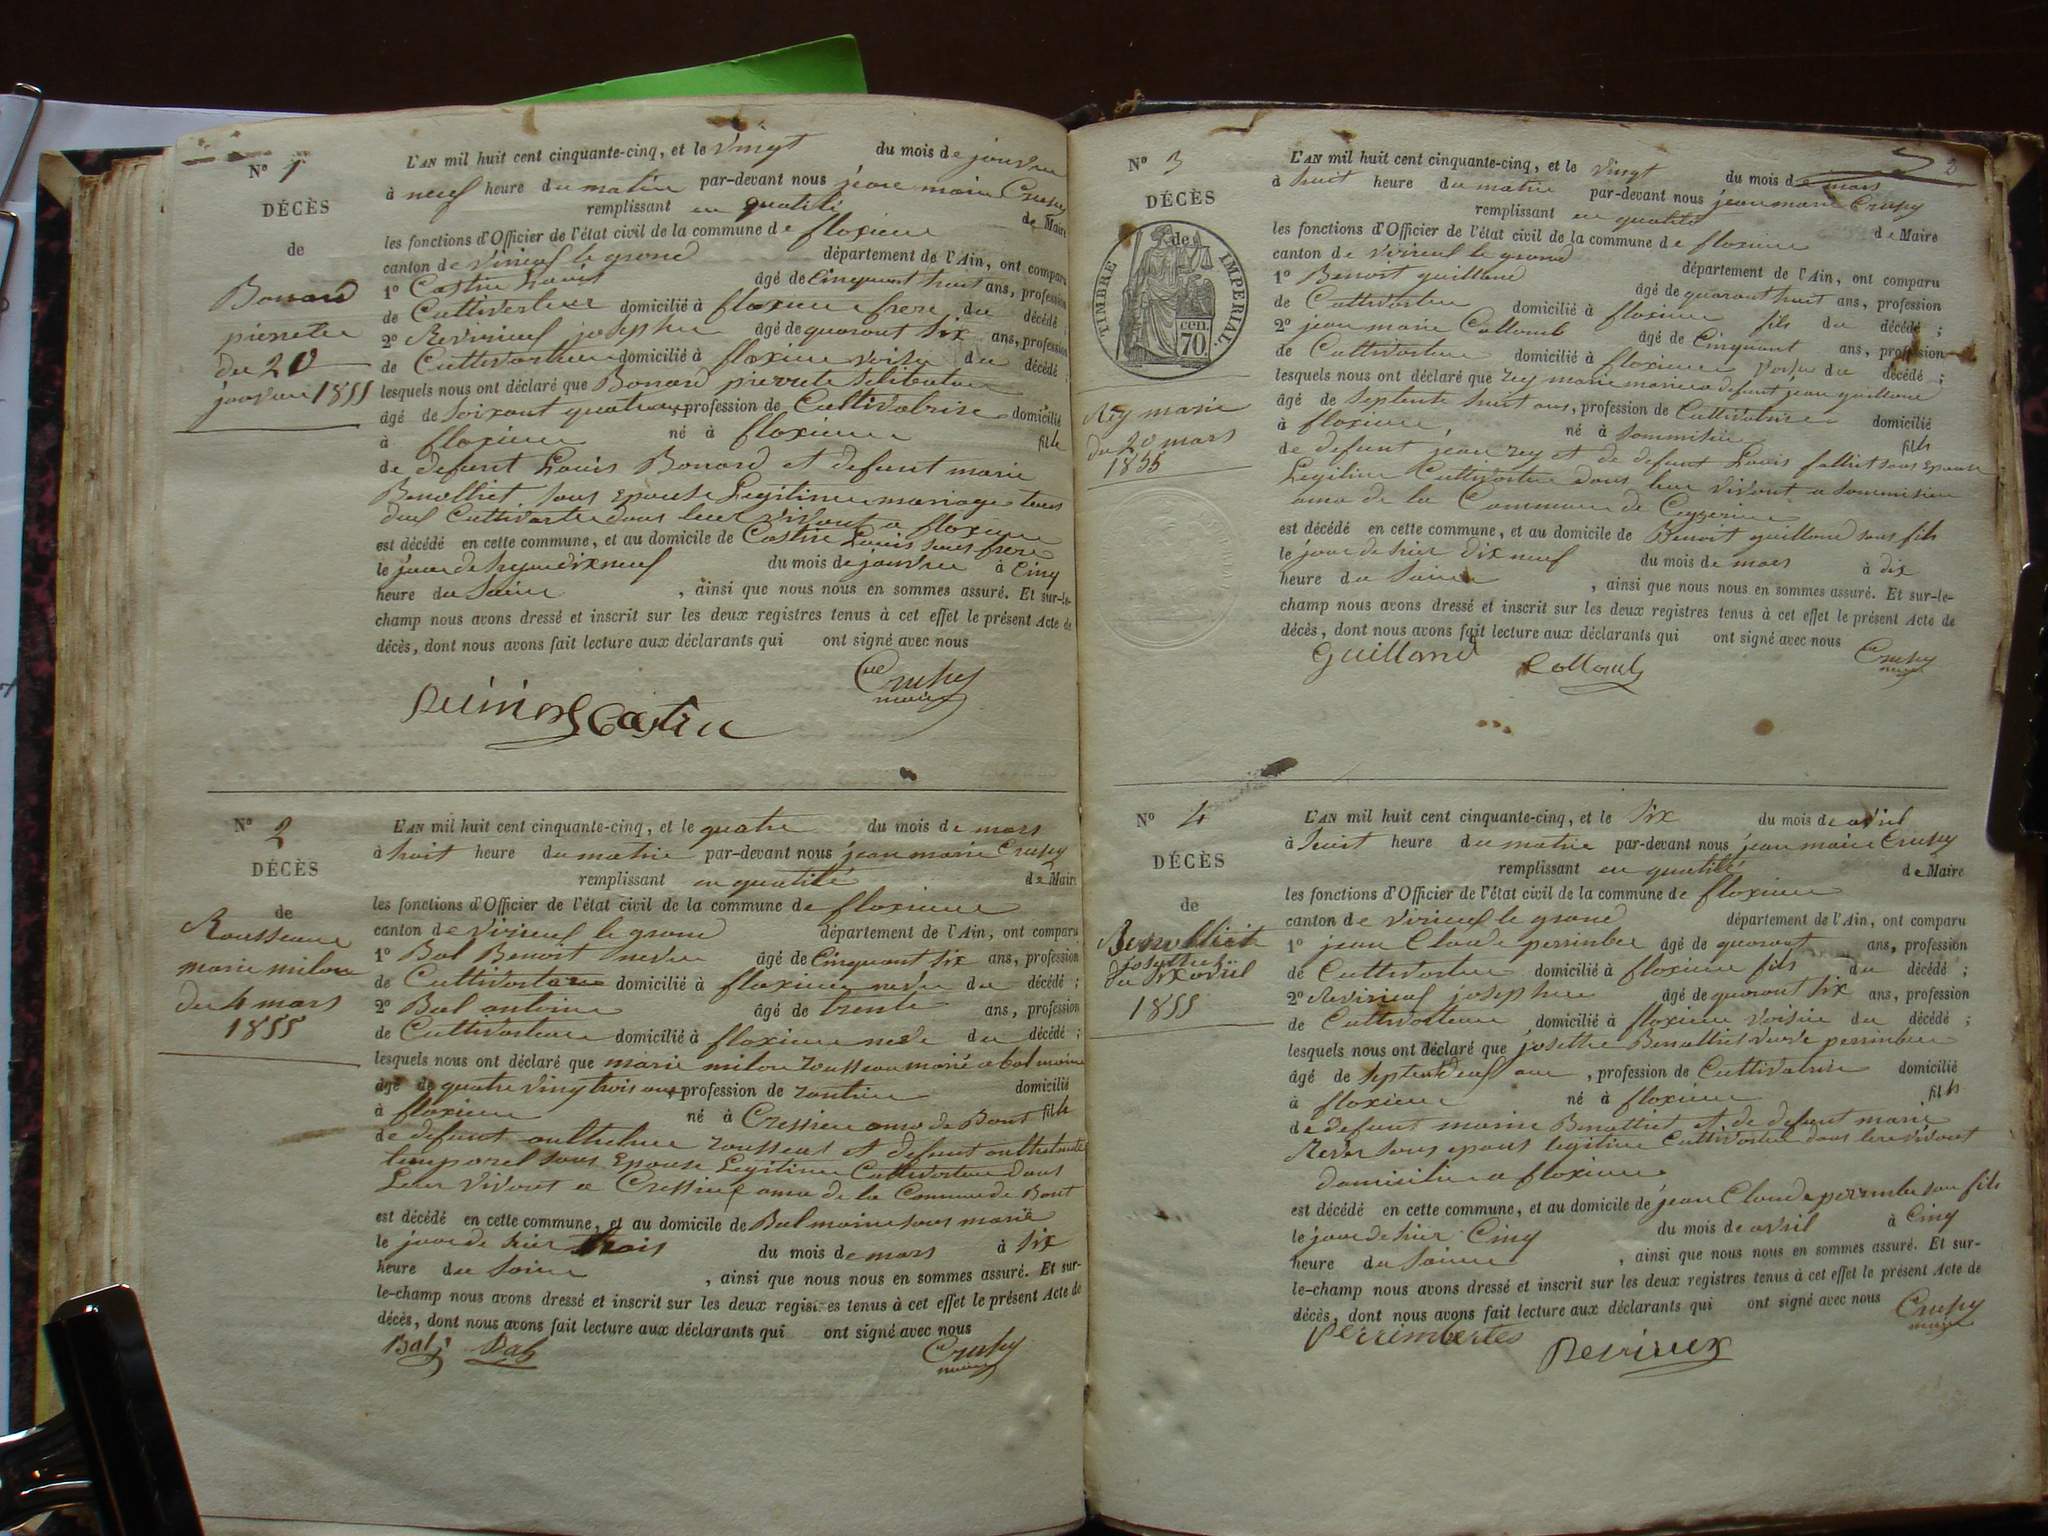 N° 1
DÉCÈS
de
Bonard
pierrette
du 20
janvier 1855
L'AN mil huit cent cinquante-cinq, et le vingt du mois de janvier
à neuf heure du matin par-devant nous jean marie Crussy
remplissant en qualité de Maire
les fonctions d'Officier de l'état civil de la commune de floxieu
canton de virieux le grand département de l'Ain, ont comparu
1° Castin Louis âgé de Cinquant huit ans, profession
de Cultivateur domicilié à floxieu frere du décédé ;
2° Revirieux josephe âgé de quarant six ans, profession
de Cultivateur domicilié à floxieu voisin du décédé ;
lesquels nous ont déclaré que Bonard pierrette selibataire
âgé de soixant quatre ans profession de Cultivatrise domicilié
à floxieu né à floxieu fille
de defunt Louis Bonard et defunt marie
Benolliet sous Epouse Legitime mariage tous
deux Cultivateur dans leur vivant a floxieu
est décédé en cette commune, et au domicile de Castin Louis sous frere
le jour de hyer dix neuf du mois de janvier à Cinq
heure du soire , ainsi que nous nous en sommes assuré. Et sur-le-
champ nous avons dressé et inscrit sur les deux registres tenus à cet effet le présent Acte de
décès, dont nous avons fait lecture aux déclarants qui ont signé avec nous
Castin
Crussy
maire
N° 2
DÉCÈS
de
Rousseau
marie milou
du 4 mars
1855
L'AN mil huit cent cinquante-cinq, et le quatre du mois de mars
à huit heure du matin par-devant nous jean marie Crussy
remplissant en qualité de Maire
les fonctions d'Officier de l'état civil de la commune de floxieu
canton de virieux le grand département de l'Ain, ont comparu
1° Bal Benoit neveu âgé de Cinquant six ans, profession
de Cultivateur domicilié à floxieu neveu du décédé ;
2° Bal antoine âgé de trente ans, profession
de Cultivateur domicilié à floxieu neve du décédé ;
lesquels nous ont déclaré que marie milou rousseau marié a bal
âgé de quatre vingt trois ans profession de rentier domicilié
à floxieu né à Cressieu fille
de defunt rousseau et defunt
sous Epouse Legitime Cultivateur dans
Leur vivant a Cressieu de la Commune de
est décédé en cette commune, et au domicile de Bal sous marié
le jour de hier trois du mois de mars à six
heure du soire , ainsi que nous nous en sommes assuré. Et sur-
le-champ nous avons dressé et inscrit sur les deux registres tenus à cet effet le présent Acte de
décès, dont nous avons fait lecture aux déclarants qui ont signé avec nous
Bal Bal
Crussy
maire
2
N° 3
DÉCÈS
de
TIMBRE IMPERIAL
cen.
70
Rey marie
du 20 mars
1855
L'AN mil huit cent cinquante-cinq, et le vingt du mois de mars
à huit heure du matin par-devant nous jean marie Crussy
remplissant en qualité de Maire
les fonctions d'Officier de l'état civil de la commune de floxieu
canton de virieux le grand département de l'Ain, ont comparu
1° Benoit guilland âgé de quarant huit ans, profession
de Cultivateur domicilié à floxieu fils du décédé ;
2° jean marie Collomb âgé de Cinquant ans, profession
de Cultivateur domicilié à floxieu voisin du décédé ;
lesquels nous ont déclaré que rey marie marié a defunt jean guilland
âgé de septente huit ans, profession de Cultivatrice domicilié
à floxieu, né à fille
de defunt jean rey et de defunt Louis sous Epouse
Legitime Cultivateur dans leur vivant a
de la Commune de
est décédé en cette commune, et au domicile de Benoit guilland sous fils
le jour de hier dix neuf du mois de mars à dix
heure du soire , ainsi que nous nous en sommes assuré. Et sur-le-
champ nous avons dressé et inscrit sur les deux registres tenus à cet effet le présent Acte de
décès, dont nous avons fait lecture aux déclarants qui ont signé avec nous
Guilland Collomb
Crussy
maire
N° 4
DÉCÈS
de
Benolliet
josephte
du six avril
1855
L'AN mil huit cent cinquante-cinq, et le six du mois de avril
à huit heure du matin par-devant nous jean marie Crussy
remplissant en qualité de Maire
les fonctions d'Officier de l'état civil de la commune de floxieu
canton de virieux le grand département de l'Ain, ont comparu
1° jean Claude perrimber âgé de quarant ans, profession
de Cultivateur domicilié à floxieu fils du décédé ;
2° Revirieux josephe âgé de quarant six ans, profession
de Cultivateur domicilié à floxieu voisin du décédé ;
lesquels nous ont déclaré que josette Benolliet veuve perrimber
âgé de septente neuf ans , profession de Cultivatrise domicilié
à floxieu né à floxieu fille
de defunt Benolliet et de defunt marie
sous epous legitime Cultivateur dans leur vivant
domicilié a floxieu
est décédé en cette commune, et au domicile de jean Claude perrimber son fils
le jour de hier Cinq du mois de avril à Cinq
heure du soire , ainsi que nous nous en sommes assuré. Et sur-
le-champ nous avons dressé et inscrit sur les deux registres tenus à cet effet le présent Acte de
décès, dont nous avons fait lecture aux déclarants qui ont signé avec nous
Perrimbertes Revirieux
Crussy
maire